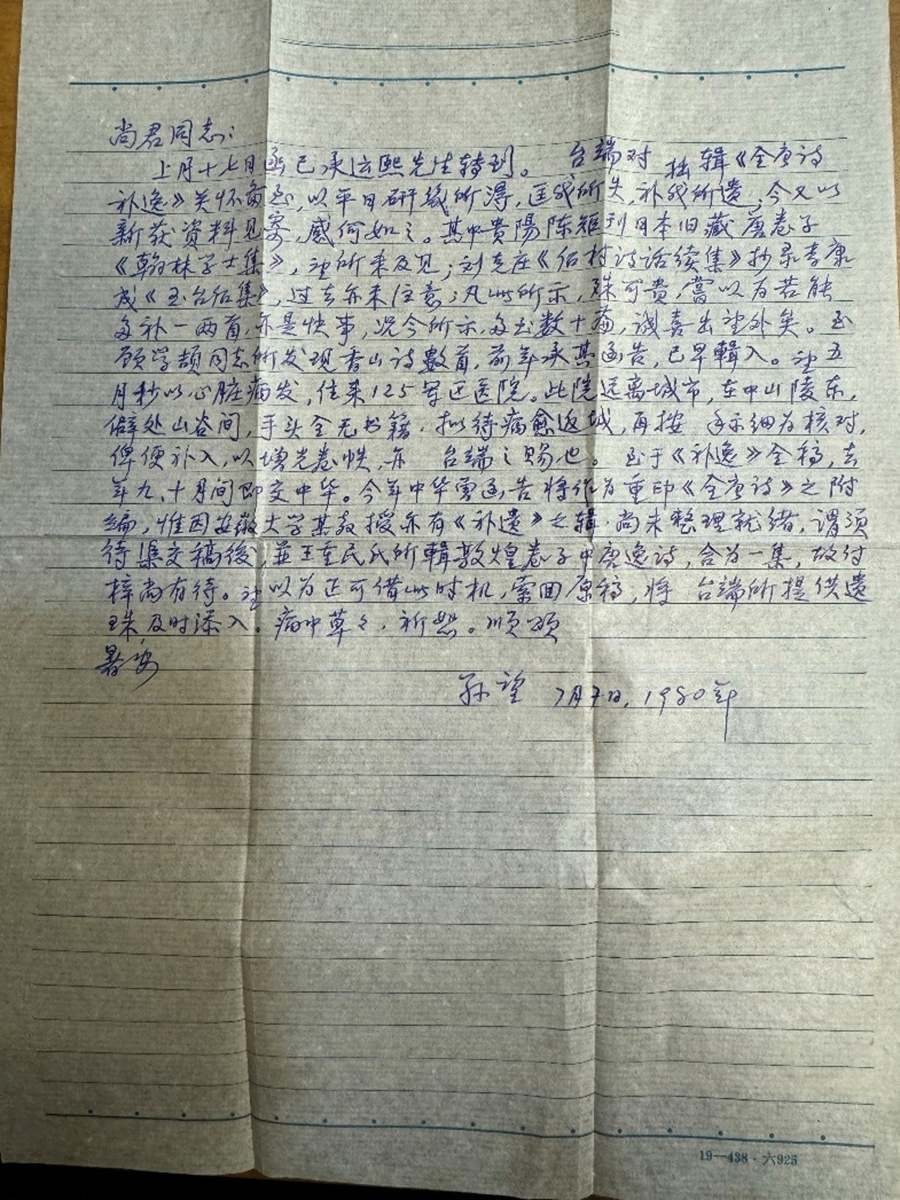 尚君同志：
上月十七日函已承运熙先生转到。 台端对 拙辑《全唐诗
补逸》关怀备至，以平日研几所得，匡我所失，补我所遗，今又以
新获资料见寄，感何如之。其中贵陽陈矩刊日本旧藏唐卷子
《翰林学士集》，望所未及见；刘克庄《后村诗话续集》抄录李康
成《玉台后集》，过去亦未注意；凡此所示，殊可贵，嘗以为若能
多补一两首，亦是快事，况今所示，多至数十首，诚喜出望外矣。至
顾学颉同志所发现香山诗數首，前年承其函告，已早輯入。望五
月杪以心脏病发，住来125军区医院。此院远离城市，在中山陵东，
僻处山谷间，手头全无书籍，拟待病愈返城，再按 手示细为核对，
俾便补入，以增光卷帙，亦 台端之赐也。至于《补逸》全稿，去
年九、十月间即交中华。今年中华曾函告将作为重印《全唐诗》之附
编，惟因安徽大学某教授亦有《补遗》之辑，尚未整理就绪，谓须
待集交稿後，並王重民氏所輯敦煌卷子中唐逸诗，合为一集，故付
梓尚有待。望以为正可借此时机，索回原稿，将 台端所提供遗
珠，及时添入。病中草々，祈恕。順頌
暑安
孙望 7月 日，1980年
19—438·六925